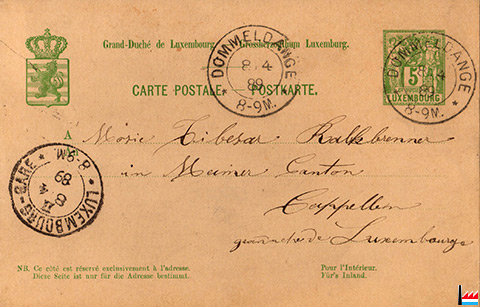 Grand-Duché de Luxembourg. Grossherzogthum Luxemburg.
DOMMELDANGE
8/4
89
8-9M.
DOMMELDANGE
8/4
89
8-9M.
5
LUXEMBOURG
CARTE POSTALE. POSTKARTE.
A
Mosie Tibesar Kalkbrenner
in Meimer Canton
Cappellen
Luxembourg
LUXEMBOURG-GARE
8-9M.
89
4
8
NB. Ce côté est réservé exclusivement à l'adresse.
Diese Seite ist nur für die Adresse bestimmt.
Pour l'Intérieur.
Für's Inland.